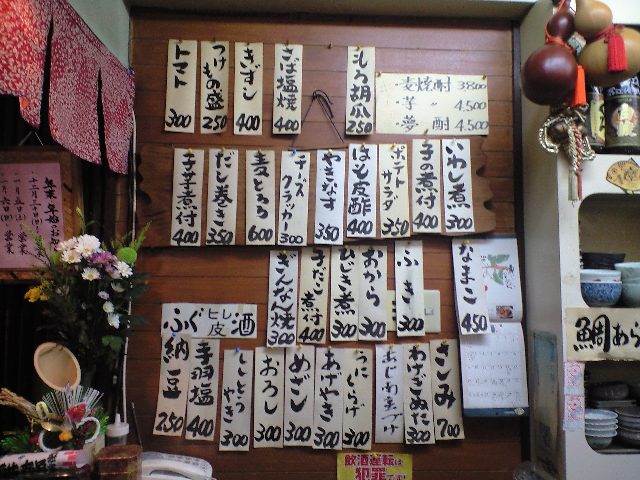 トマト 300
つけもの盛 250
きずし 400
さば塩焼 400
もろ胡瓜 250
・麦焼酎 3,800
・芋 〃 4,500
・夢 酎 4,500
子芋煮付 400
だし巻き 350
麦とろろ 600
チーズクラッカー 300
やきなす 350
はも皮酢 400
ポテトサラダ 350
子の煮付 400
いわし煮 300
ぎんなん焼 300
子だこ煮付 400
ひじき煮 300
おから 300
ふき 300
なまこ 450
ふぐ ヒレ 皮 酒
納豆 250
手羽塩 400
ししとうやき 300
おろし 300
めざし 300
あげやき 300
うにくらげ 300
わけぎぬた 300
さしみ 700
鯛あら
飲酒運転は
犯罪です!